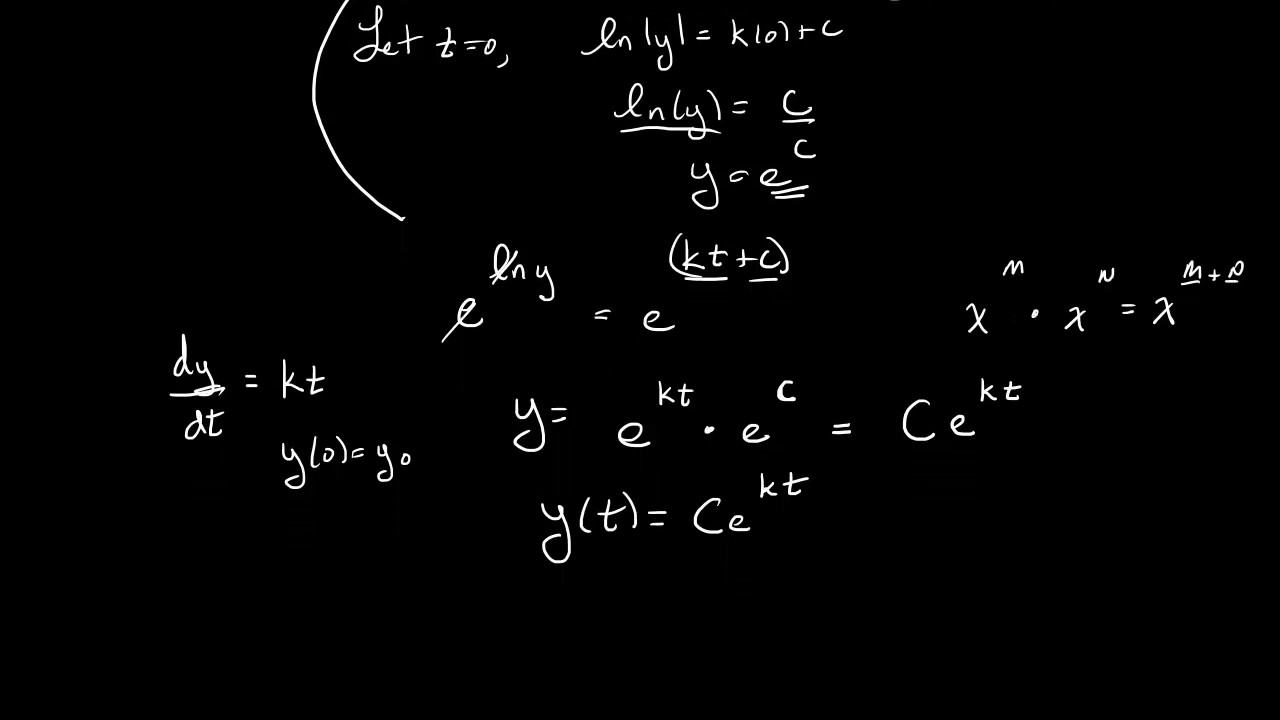 Let t=0, ln|y| = k(0)+c
ln(y) = c
y = e^c
e^{ln y} = e^{(kt+c)}
x^m · x^n = x^{m+n}
dy/dt = kt
y(0) = y₀
y = e^{kt} · e^c = Ce^{kt}
y(t) = Ce^{kt}